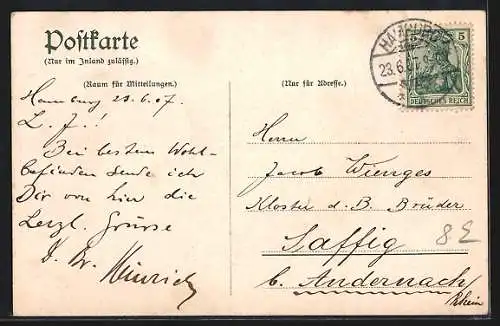 Postkarte
(Nur im Inland zulässig.)
(Raum für Mitteilungen.)
(Nur für Adresse.)
HAMBURG
23.6.07
5
DEUTSCHES REICH
Hamburg 23.6.07.
L. J.!
Bei bestem Wohl-
befinden sende ich
Dir von hier die
herzl. Grüsse
D. Br. Heinrich
Herrn
Jacob Wienges
Kloster d. B. Brüder
Saffig
b. Andernach
Rhein
8 E